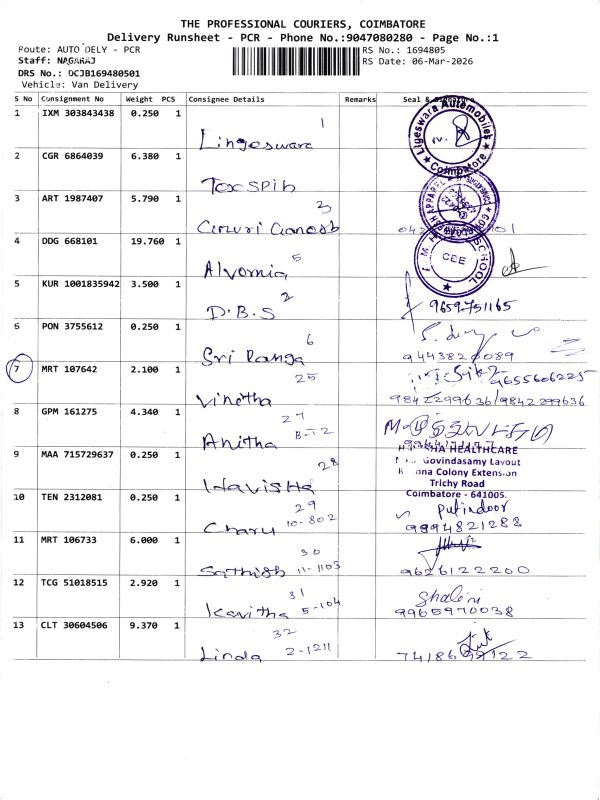 THE PROFESSIONAL COURIERS, COIMBATORE
Delivery Runsheet - PCR - Phone No.:9047080280 - Page No.:1
Route: AUTO DELY - PCR
RS No.: 1694805
Staff: NAGARAJ
RS Date: 06-Mar-2026
DRS No.: OCJB169480501
Vehicle: Van Delivery
S No Consignment No Weight PCS Consignee Details Remarks Seal &
1 IXM 303843438 0.250 1
1
Lingeswara
Automobiles
Coimbatore
2 CGR 6864039 6.380 1
Texspin
3 ART 1987407 5.790 1
3
4 DDG 668101 19.760 1
5
SCHOOL
CEE
5 KUR 1001835942 3.500 1
2
D.B.S
9659751165
6 PON 3755612 0.250 1
6
Sri Ranga
9443820089
7 MRT 107642 2.100 1
25
Vinetha
9655606225
9842299636/9842299636
8 GPM 161275 4.340 1
27
Anitha
9 MAA 715729637 0.250 1
28
Havisha
HEALTHCARE
Govindasamy Layout
Colony Extension
Trichy Road
Coimbatore - 641005.
10 TEN 2312081 0.250 1
29
Charu 10-802
9894821288
11 MRT 106733 6.000 1
30
Sathish 11-1103
9626122200
12 TCG 51018515 2.920 1
31
Kavitha 5-104
Shaleni
9965970038
13 CLT 30604506 9.370 1
32
Linda 2-1211